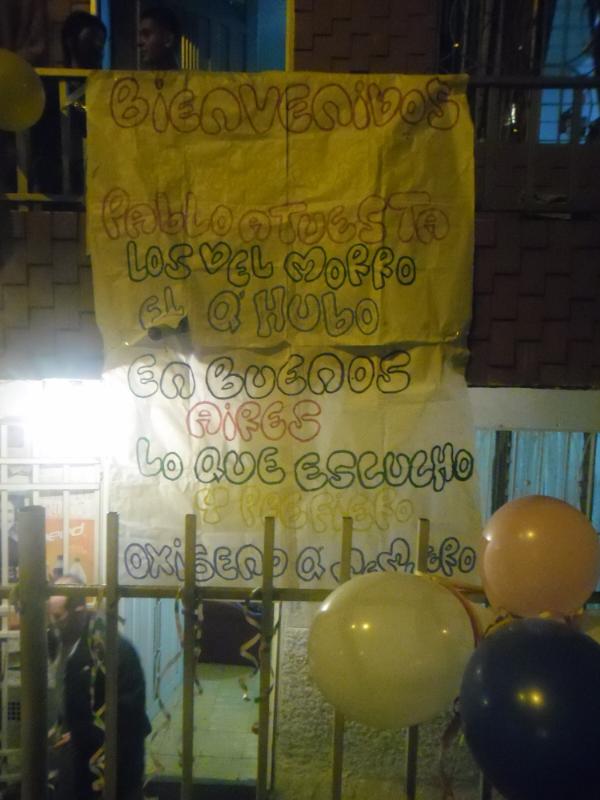 BIENVENIDOS
PABLO ATUESTA
LOS DEL MORRO
EL Q'HUBO
EN BUENOS
AIRES
LO QUE ESCUCHO
Y PREFIERO
OXIGENO